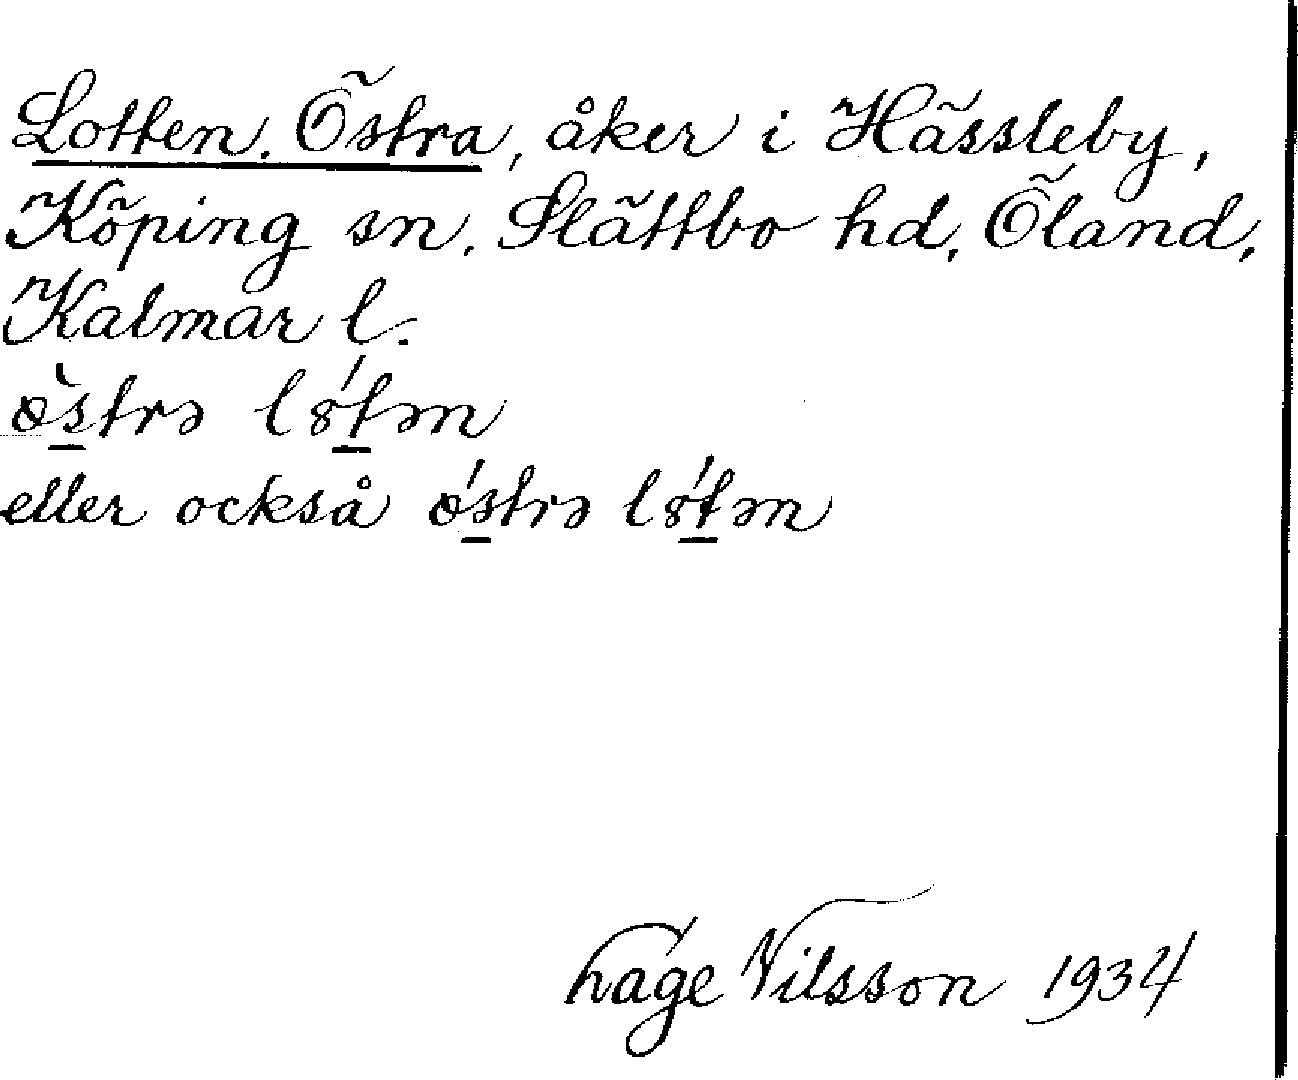 Lotten. Östra, åker i Hässleby,
Köping sn. Slättbo hd, Öland,
Kalmar l.
ö̀strə l8́tən
eller också ö́strə l8́tən
Hage Nilsson 1934